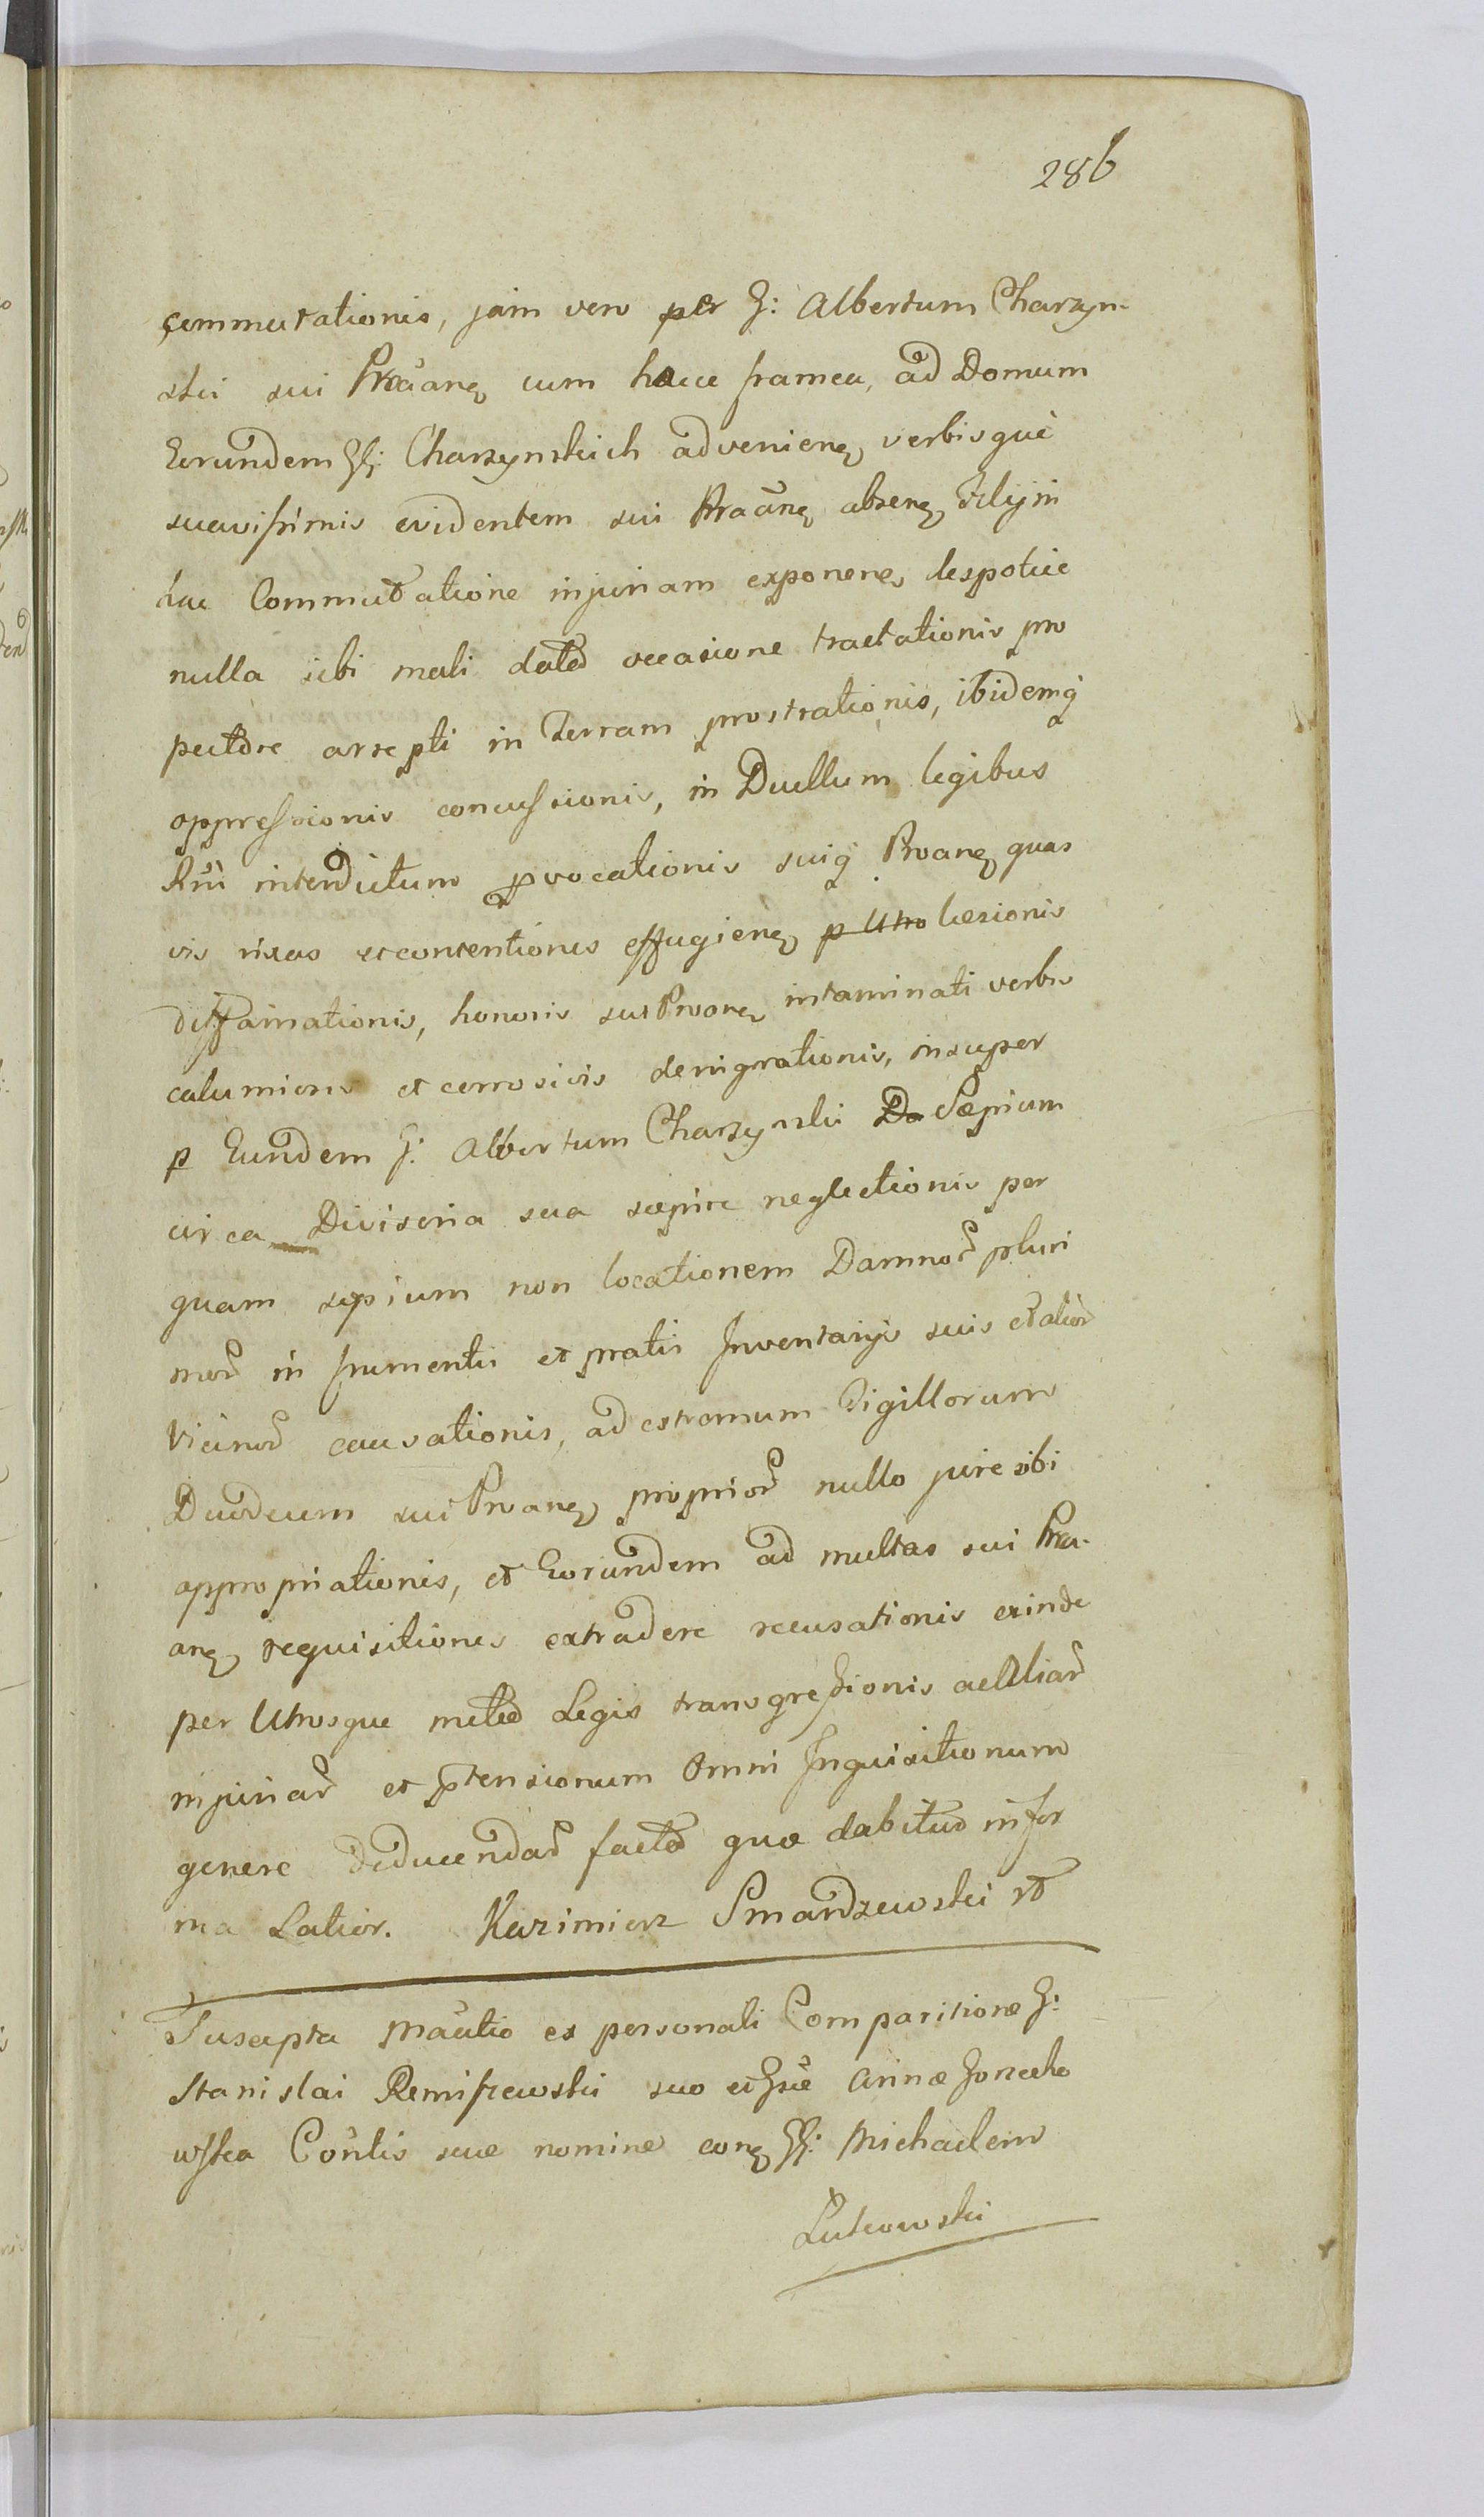 286
commutationis, jam vero per G: Albertum Charzyn-
ski sui Proãnę cum hacce framea, ad Domum
Eorundem GG: Charzynskich advenienę verbisquè
suavissimis evidentem sui Proãnę absenę Filÿ in
hac Commutatione injuriam exponenę despotice
nulla sibi mali data occasione tractationis pro
pectore arrepti in Terram prostrationis, ibidemq
oppressionis concussionis, in Duellum legibus
Rni interdictum provocationis suiq Proanę quas
vis rixas et contentiones effugienę p Utro læsionis
diffamationis, honoris sui Proanę intaminati verbis
calumionis et corrosivis denigrationis, insuper
p Eundem G: Albertum Charzynski Da Sæpium
circa Divisoria sua sæpire neglectionis per
quam sepium non locationem Damnor pluri
mor in frumentis et pratis Inventarÿs suis et alior
Vicinor causationis, ad extremum Sigillorum
Duodecim sui Proanę proprior nullo jure sibi
appropriationis, et Eorundem ad multas sui Pro-
anę requisitiones extradere recusationis exinde
per Utrosque meted Legis transgressionis ac Aliar
injuriar et ptensionum Omni Inquisitionum
genere Deducendar facted quæ dabitur in for
ma Latior. Kazimierz Smardzewski rt
Suscepta Mãutio ex personali Comparitione G:
Stanislai Remiszewski suo et Gsæ Annæ Gorzecho
wska Coñtis suæ nomine conę GG: Michaelem
Lutkowski